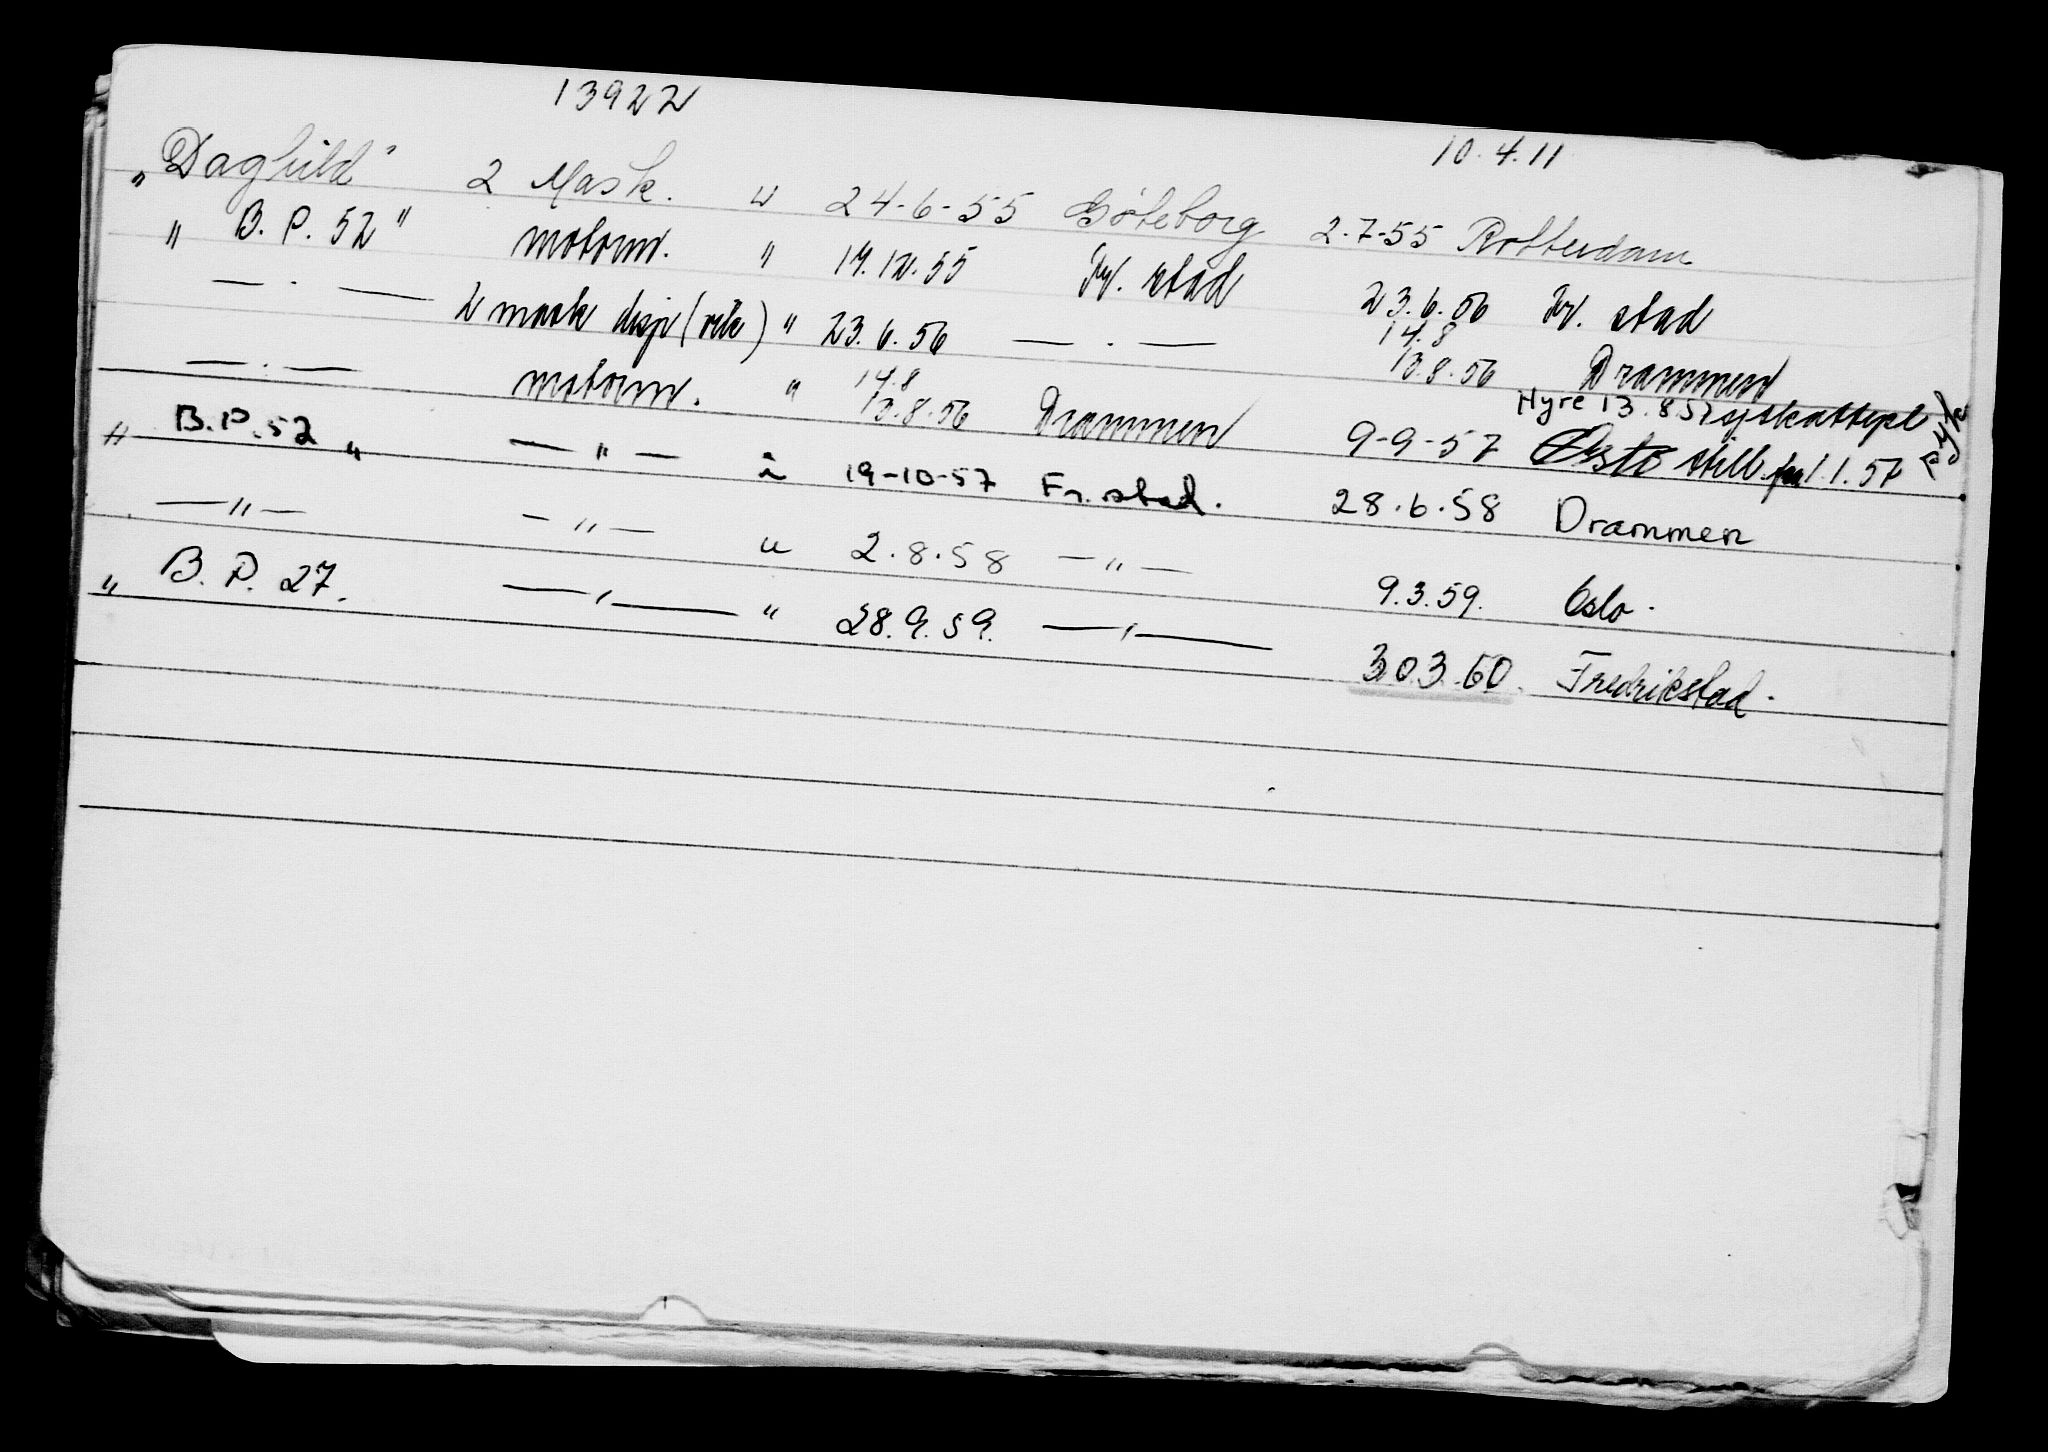 13922
10.4.11
"Daghild" 2 Mask. " 24-6-55 Göteborg 2-7-55 Rotterdam
" B. P. 52 " motorm. " 19.12.55 Fr. stad 23.6.56 Fr. stad
— . — 2 mask disp (vik) " 23.6.56 — . — 14.8 13.8.56 Drammen
— . — motorm. " 14.8 13.8.56 Drammen 9-9-57 Oslo still fra 1.1.57
Hyre 13.8.57 sjskattepl
" B.P. 52 " — " — " 19-10-57 Fr. stad. 28.6.58 Drammen
— " — — " — " 2.8.58 — " — 9.3.59. Oslo.
" B. P. 27. — " — " 28.9.59. — " — 30.3.60. Fredrikstad.